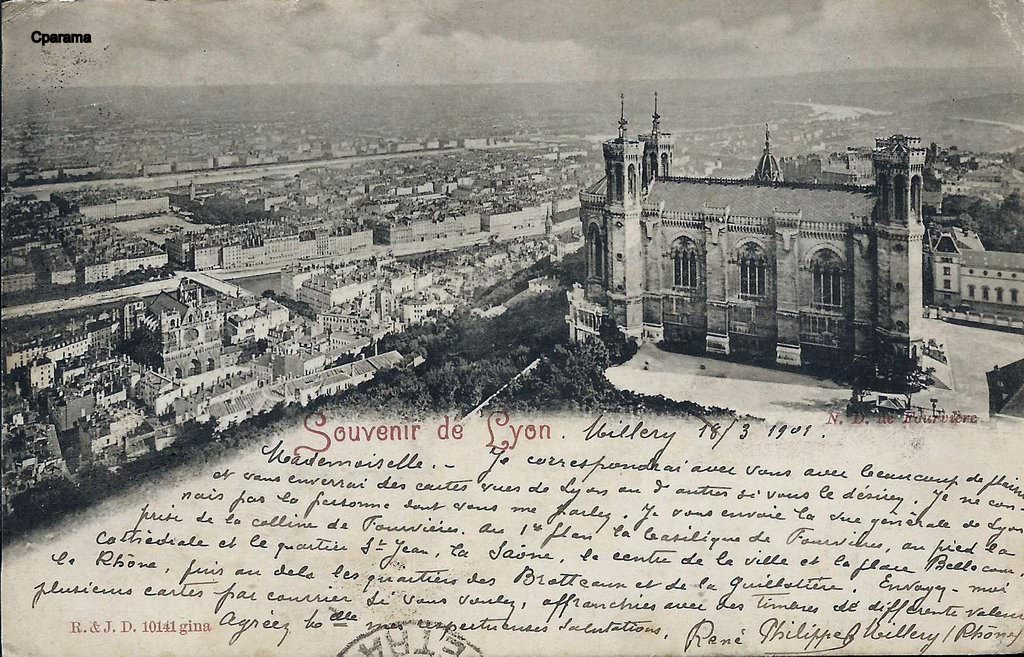 Cparama
N. D. de Fourvière
Souvenir de Lyon. Millery 18/3 1901.
Mademoiselle. - Je correspondrai avec vous avec beaucoup de plaisir
et vous enverrai des cartes vues de Lyon ou d'autres si vous le désirez. Je ne con-
nais pas la personne dont vous me parlez. Je vous envoie la vue générale de Lyon
prise de la colline de Fourvières. Au 1er plan la basilique de Fourvières, au pied la
Cathédrale et le quartier St Jean, la Saône, le centre de la ville et la place Bellecour,
le Rhône, puis au delà les quartiers des Brotteaux et de la Guillotière. Envoyez-moi
plusieurs cartes par courrier si vous voulez, affranchies avec des timbres de différente valeur
Agréez Melle mes respectueuses salutations.
René Philippe Millery (Rhône)
R. & J. D. 10141 gina